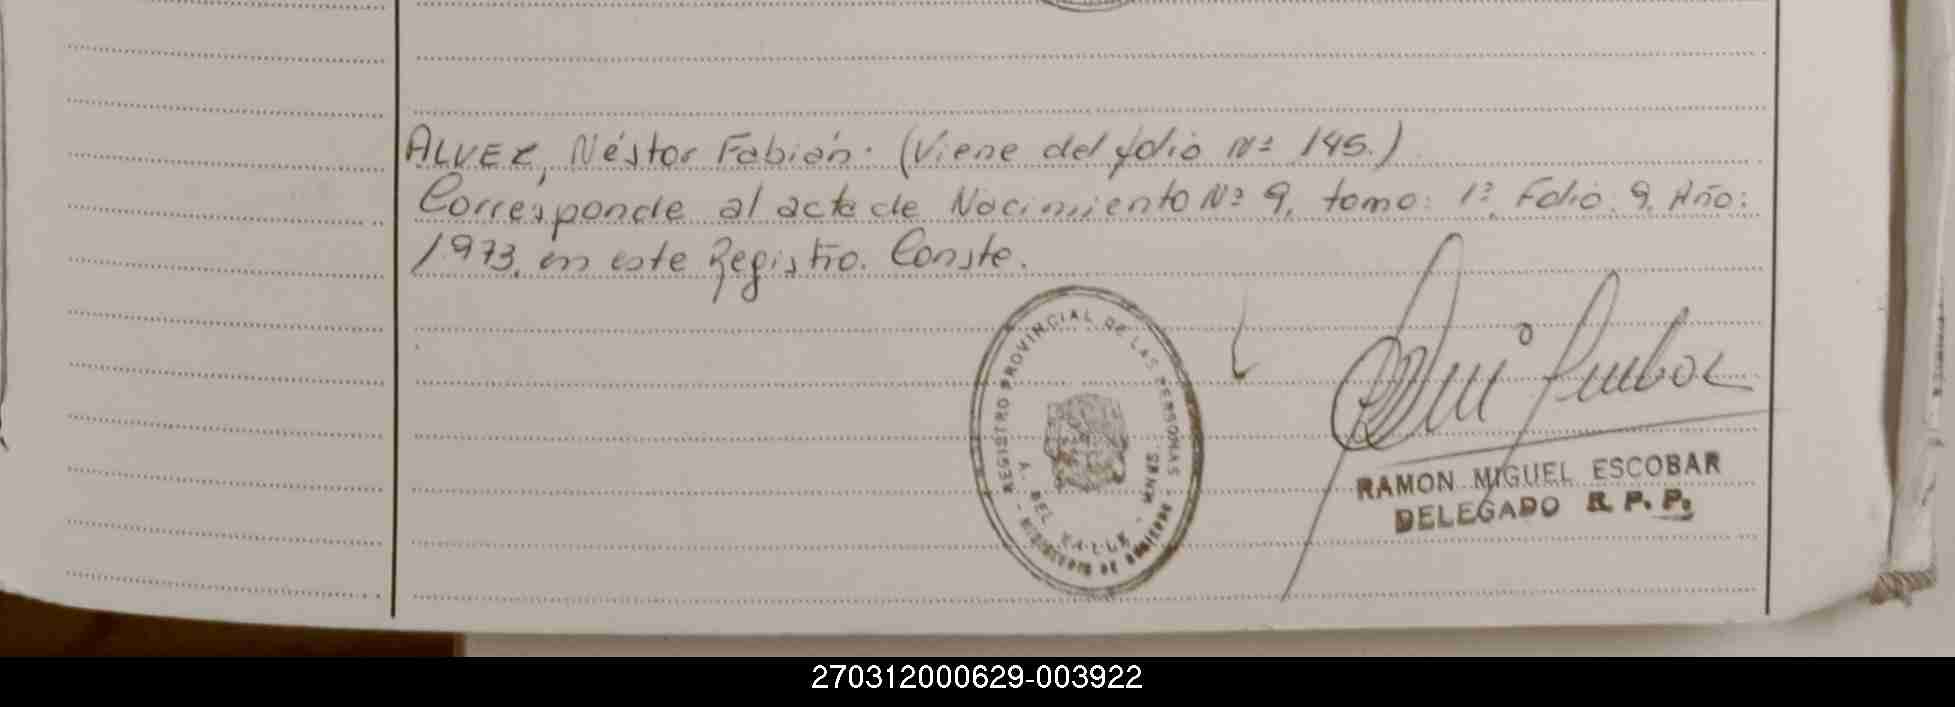 ALVEZ, Néstor Fabián. (Viene del folio Nº 145.)
Corresponde al acta de Nacimiento Nº 9, tomo: 1º, Folio: 9, Año:
1973, en este Registro. Conste.
REGISTRO PROVINCIAL DE LAS PERSONAS
A. DEL VALLE - MNES.
MINISTERIO DE GOBIERNO
RAMON MIGUEL ESCOBAR
DELEGADO R. P. P.
270312000629-003922